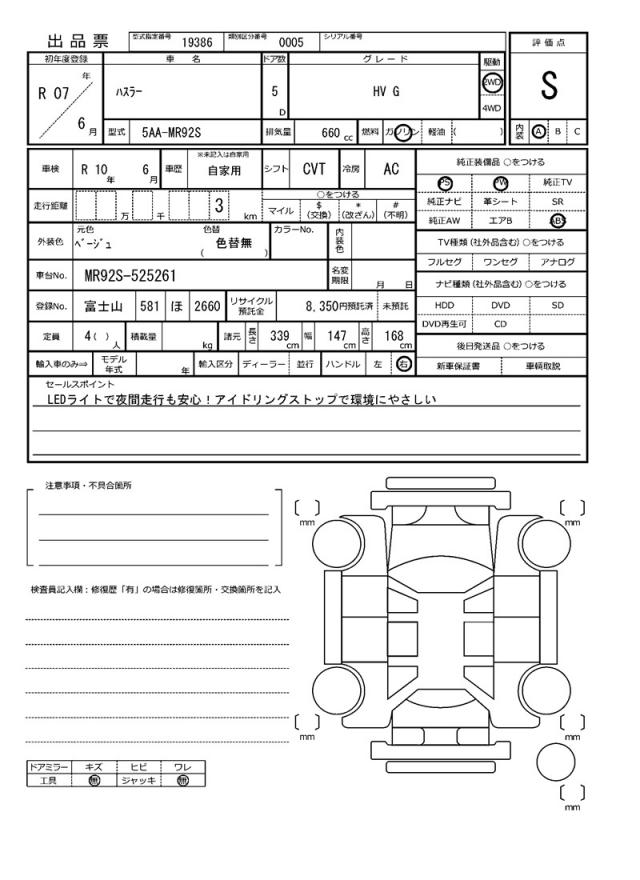 出品票 型式指定番号 19386 類別区分番号 0005 シリアル番号
評価点
S
内装 A B C
初年度登録 車名 ドア数 グレード 駆動
R 07 年 6 月 ハスラー 5 D HV G 2WD 4WD
型式 5AA-MR92S 排気量 660 cc 燃料 ガソリン 軽油 ( )
車検 R 10 年 6 月 車歴 ※未記入は自家用 自家用 シフト CVT 冷房 AC
走行距離 万 千 3 km ○をつける
マイル $(交換) *(改ざん) #(不明)
外装色 元色 ベージュ 色替 色替無 ( ) カラーNo. 内装色
車台No. MR92S-525261 名変期限 月 日
登録No. 富士山 581 ほ 2660 リサイクル預託金 8,350円預託済 未預託
定員 4 ( ) 人 積載量 kg 諸元 長さ 339 cm 幅 147 cm 高さ 168 cm
輸入車のみ⇒ モデル年式 年 輸入区分 ディーラー 並行 ハンドル 左 右
純正装備品 ○をつける
PS PW 純正TV
純正ナビ 革シート SR
純正AW エアB ABS
TV種類 (社外品含む) ○をつける
フルセグ ワンセグ アナログ
ナビ種類 (社外品含む) ○をつける
HDD DVD SD
DVD再生可 CD
後日発送品 ○をつける
新車保証書 車輌取説
セールスポイント
LEDライトで夜間走行も安心！アイドリングストップで環境にやさしい
注意事項・不具合箇所
検査員記入欄：修復歴「有」の場合は修復箇所・交換箇所を記入
mm
mm
mm
mm
mm
ドアミラー キズ ヒビ ワレ
工具 無 ジャッキ 無